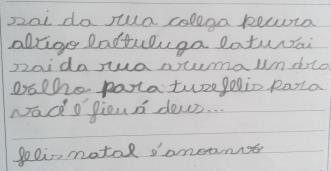 sai da rua colega pecura
abrigo lattuluga latuvai
sai da rua aruma um dra
balho para ture felis para
você é fieu á deus...
felis natal é anoanvo